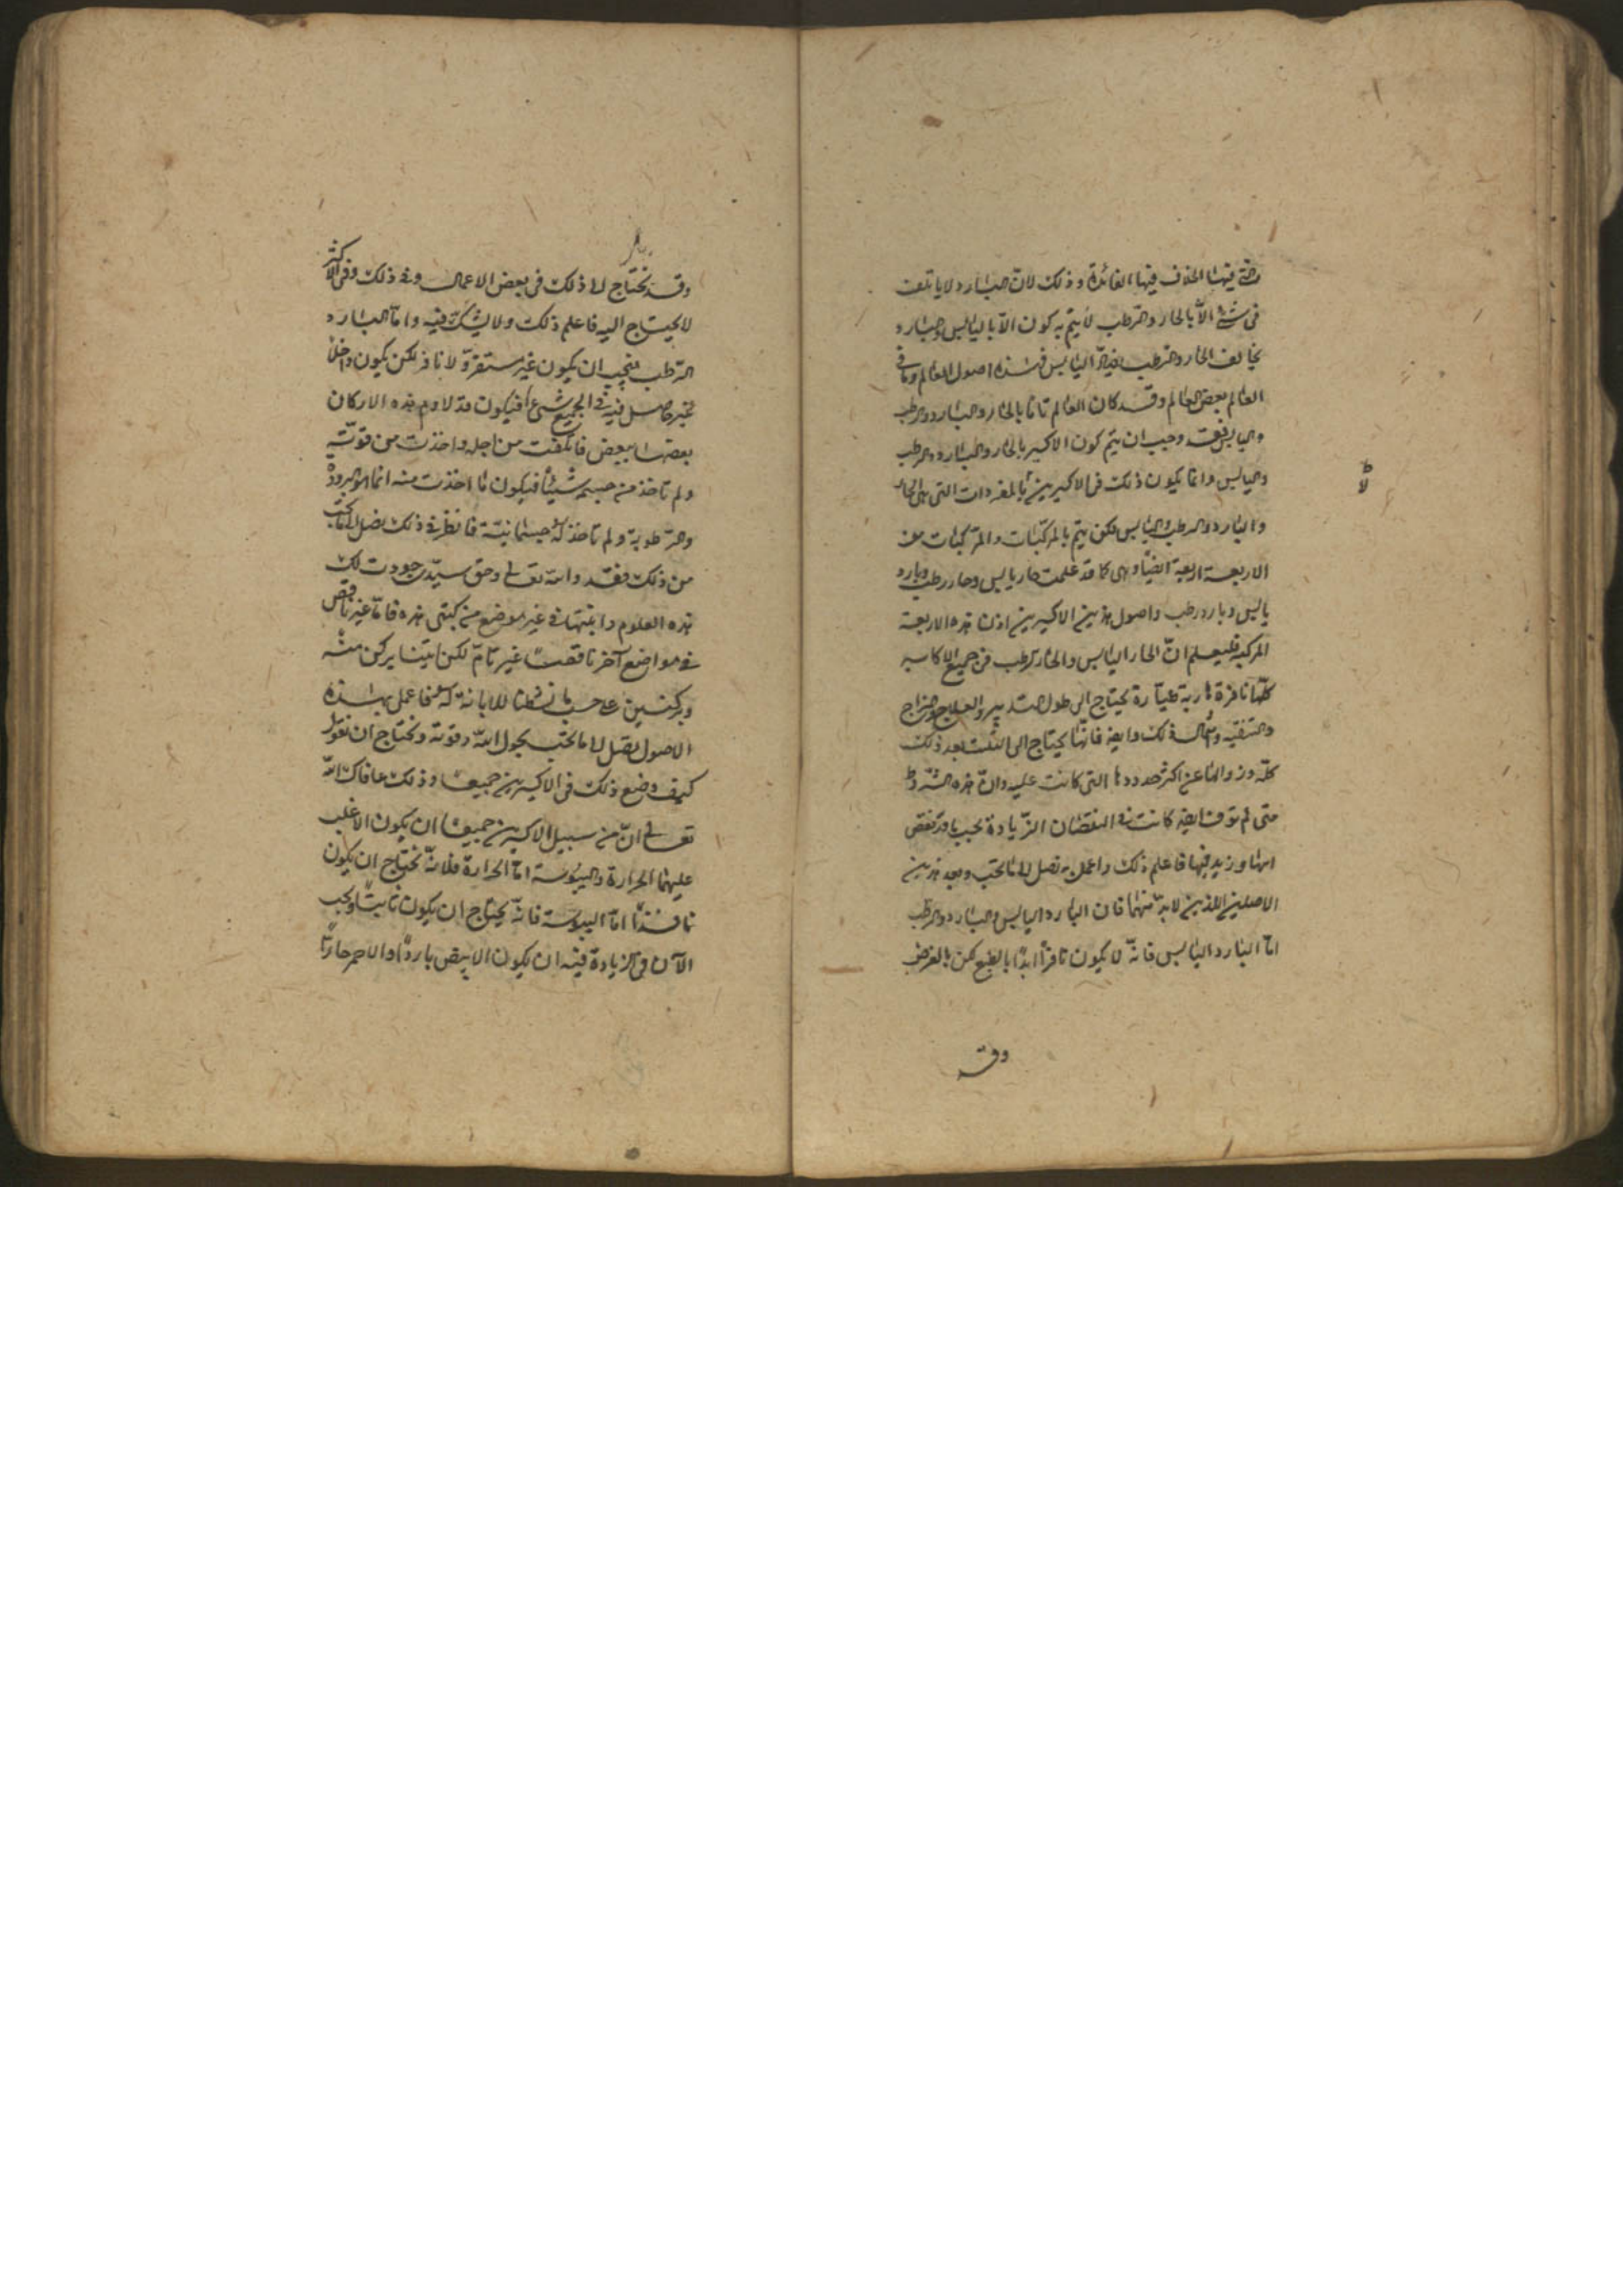 فيها الخلاف فيها الفائدة وذلك لان البارد لا ياتلف
فى شئ الّا بالحار والرّطب لا يتمّ به كون الّا باليابس والبارد
يخالف الحار والرطب يضادّ اليابس فهذه اصول العالم وما فى
العالم بعض العالم وقد كان العالم تاما بالحار والبارد والرطب
واليابس فقد وجب ان يتم كون الاكسير بالحار والبارد والرطب
واليابس وانما يكون ذلك فى الاكسيرين بالمفردات التى هى الحار
والبارد والرطب واليابس لكن يتم بالمركّبات والمركبات من
الاربعة اربعة ايضا وهى كما قد علمت حار يابس وحار رطب وبارد
يابس وبارد رطب واصول هذين الاكسيرين اذا هذه الاربعة
المركبة فليعلم انّ الحار اليابس والحار الرطب فى جميع الاكاسير
كلّها نافرة هاربة طيّارة يحتاج الى طول التدبير والعلاج والمزاج
والتنقية وامثال ذلك وايضا فانّها يحتاج الى التثبت بعد ذلك
كلّه وزوالها عن اكثر حدودها التى كانت عليه وانّ هذه الشروط
متى لم توف ايضا كانت فى النقصان الزّيادة بحسب ما قد نقص
منها وزيد فيها فاعلم ذلك واعمل به تصل الى ما تحب وبعد هذين
الاصلين اللذين لا بدّ منهما فان البارد اليابس والبارد والرطب
امّا البارد اليابس فانّه لا يكون نافرا ابدا بالطبع لكن بالعرض
وقد
لا
وقد نحتاج الى ذلك فى بعض الاعمال وفى ذلك وفى الاكثر
لا يحتاج اليه فاعلم ذلك ولا يشكّ فيه وامّا البارد
الرّطب فيجب ان يكون غير مستقرّ ولا نافر لكن يكون داخلا
غير حاصل فيه فى الجميع شىء فيكون قد لاوم هذه الاركان
بعضها ببعض فاتلفت من اجله واخذت من قوّته
ولم تاخذ من جسمه شيئا فيكون ما اخذت منه انما هو البرودة
والرّطوبة ولم تاخذ له جسمانيّة فانظر فى ذلك تصل الى ما تحب
من ذلك فقد والله تعالى وحق سيّدى جودت لك
هذه العلوم وابنتها فى غير موضع من كتبى هذه تامّا غير ناقص
فى مواضع آخر ناقصا غير تامّ لكن اتينا بركن منه
وبركنين على حسب ما نشطنا للابانة له فاعمل بهذه
الاصول تصل الى ما تحب بحول الله وقوته ونحتاج ان نقول
كيف وضع ذلك فى الاكسيرين جميعا وذلك عافاك الله
تعالى انّ من سبيل الاكسيرين جميعا ان يكون الاغلب
عليهما الحرارة واليبوسة امّا الحرارة فلانّه نحتاج ان يكون
نافذا امّا اليبوسة فانّه يحتاج ان يكون ثابتا ويجب
الآن فى الزيادة فيه ان يكون الابيض باردا والاحمر حارّا